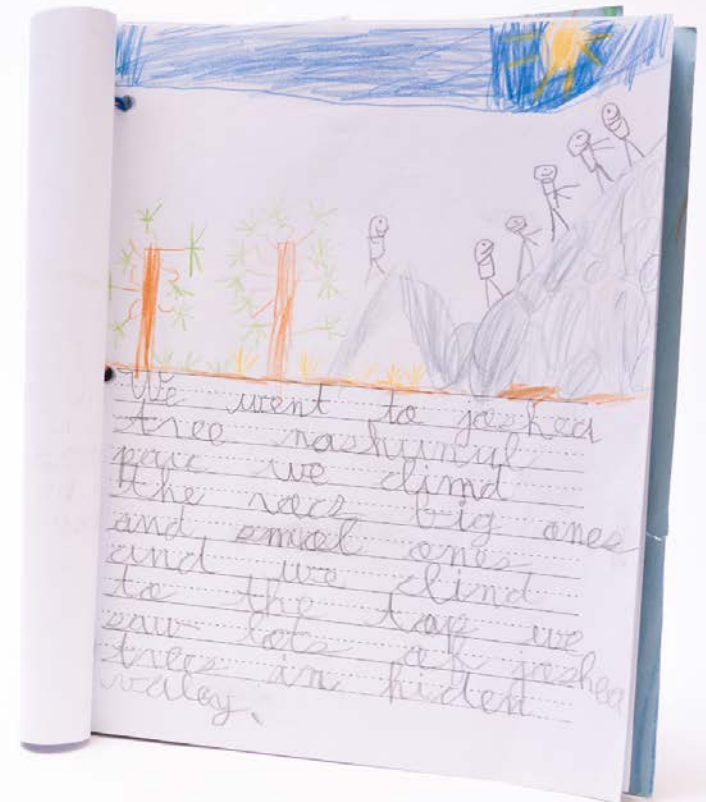 We went to joshea
tree nashunul
parc we climd
the racs big ones
and smal ones
and we climd
to the top we
saw lots of joshea
trees in hiden
valey.